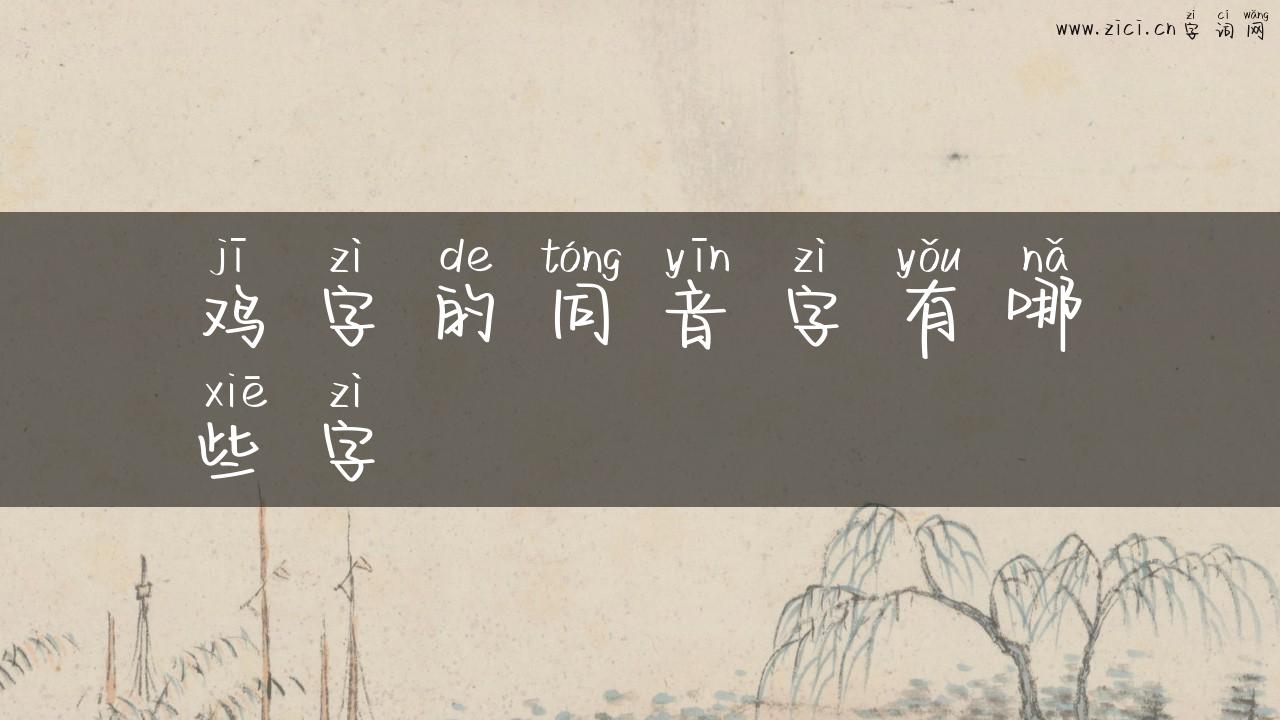 zì cí wǎng
www.zici.cn 字词网
jī zì de tóng yīn zì yǒu nǎ
鸡字的同音字有哪
xiē zì
些字